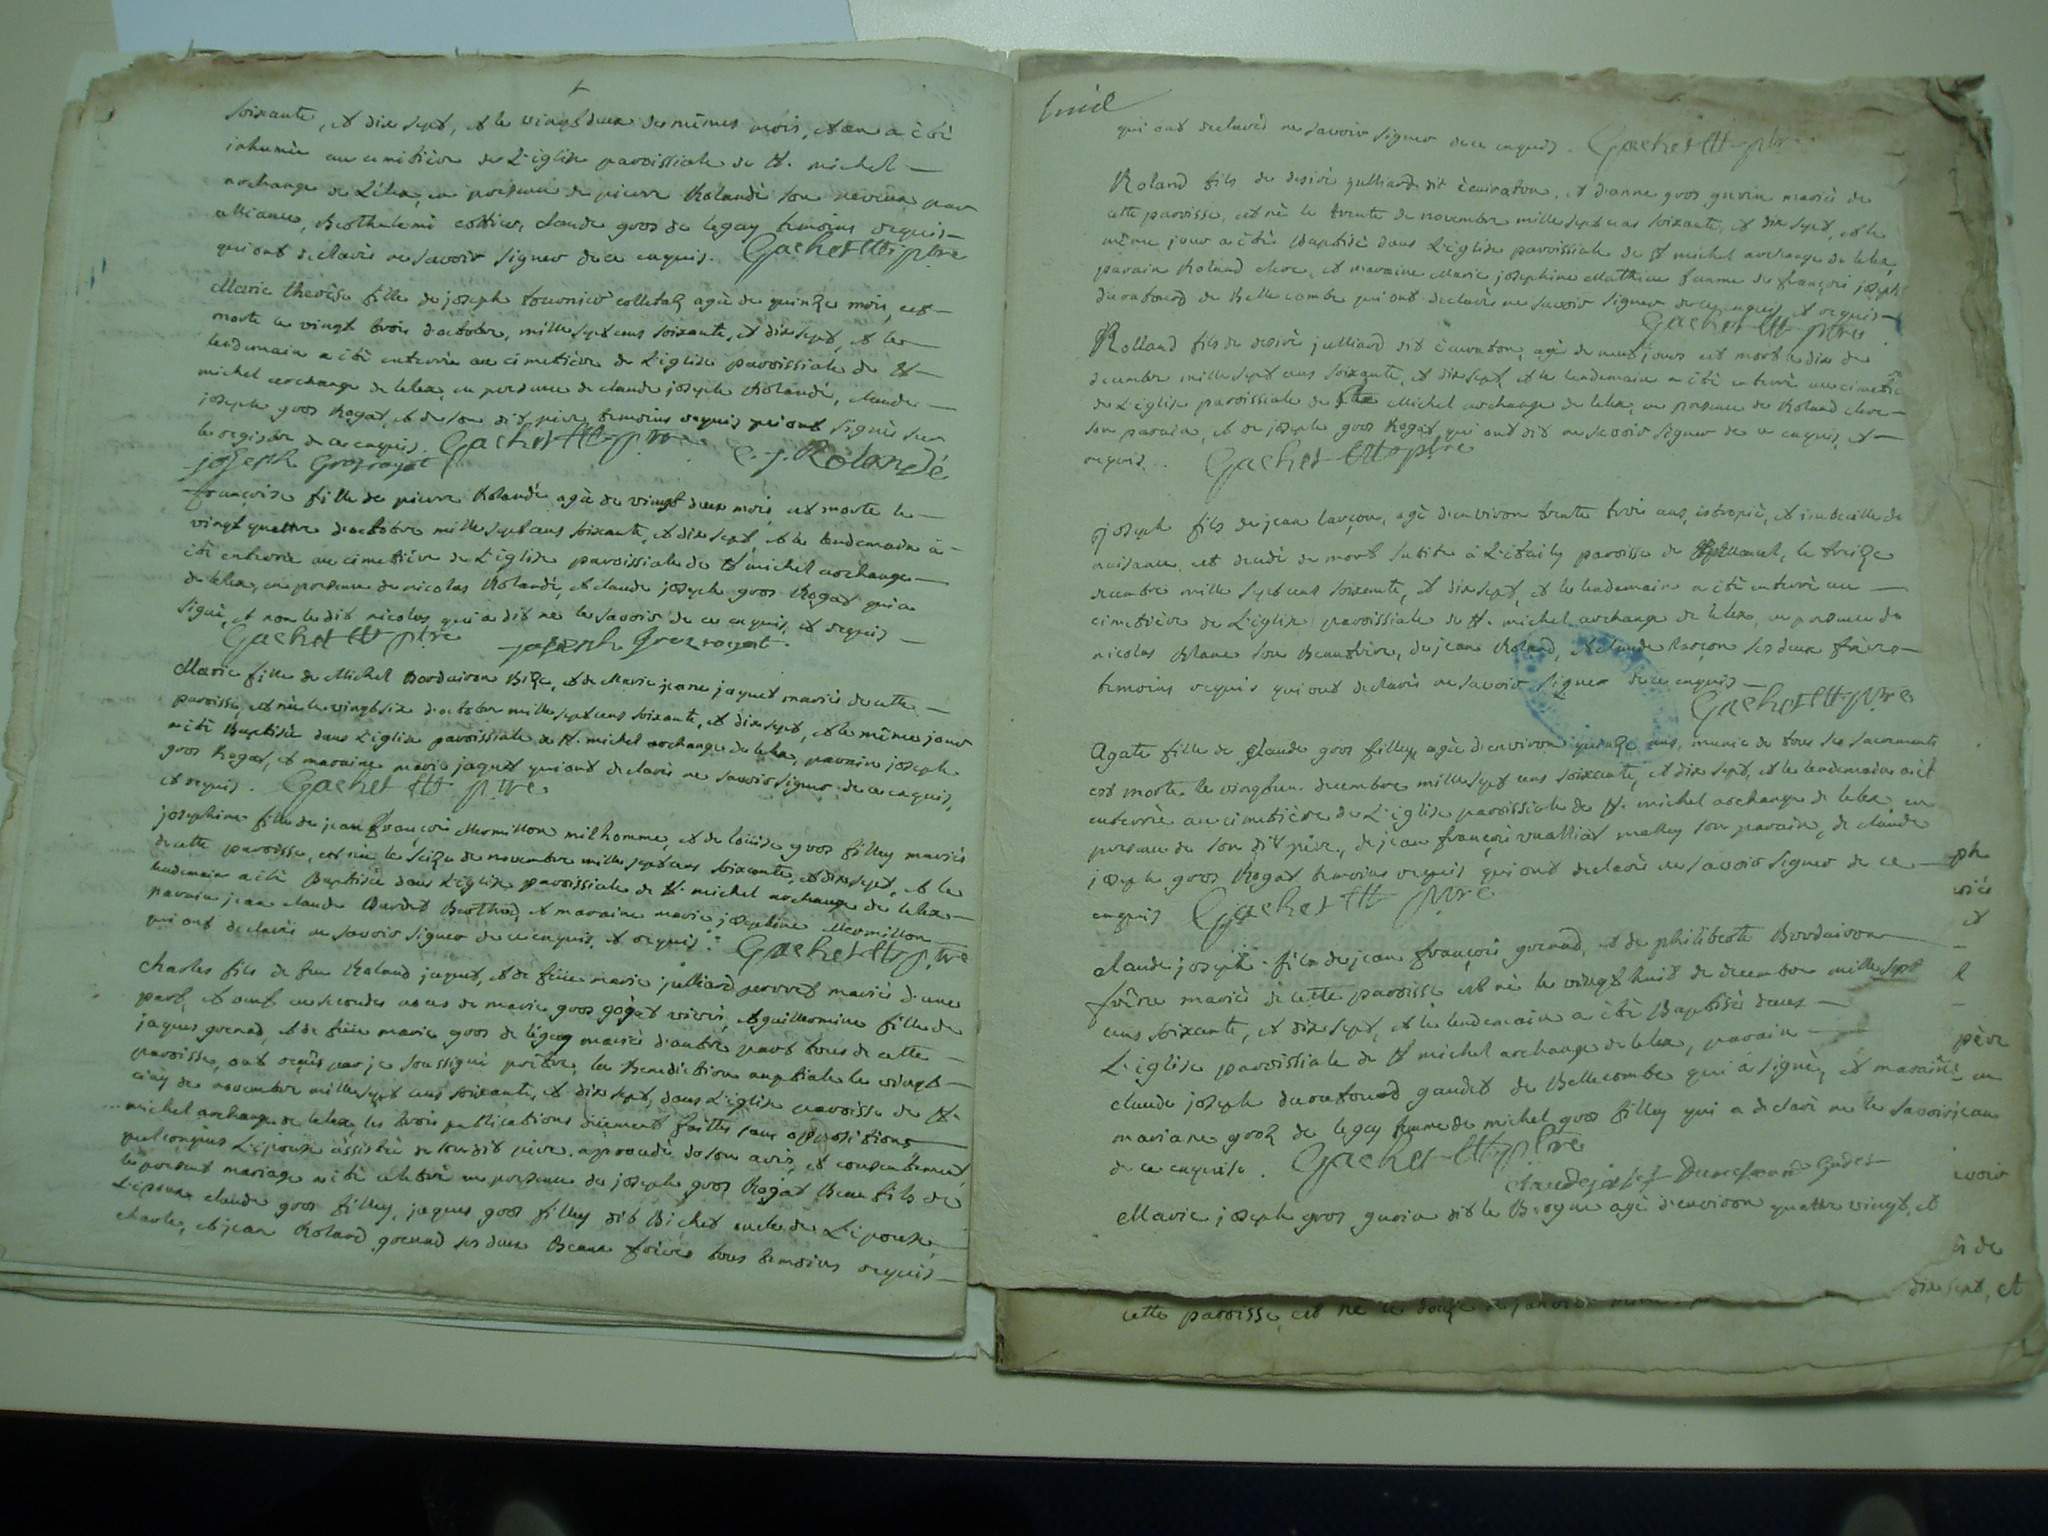 soixante, et dix sept, et le vingt deux du même mois, et an a été
inhumée au cimitière de L'église paroissiale de St. michel
archange de Lelex, en présence de pierre Rolandé son neveux par
alliance, Berthelemi cottier, claude gros de legay temoins requis
qui ont déclarés ne savoir signer de ce enquis. Gachet ptre
Marie therêse fille de joseph tournier colletaz agée de quinze mois, est
morte le vingt trois d'octobre, mille sept cens soixante, et dix sept, et le
lendemain a été enterrée au cimetière de L'église paroissiale de St
michel archange de lelex, en présence de claude joseph Rolandé, claude
joseph gros Rogat, et de son dit père temoins requis qui ont signés sur
le registre de ce enquis. Gachet ptre C. j. Rolandé
joseph Grosrogat
françoise fille de pierre Rolandé agée de vingt deux mois est morte le
vingt quattre d'octobre mille sept cens soixante, et dix sept, et le lendemain a
été enterrée au cimetière de L'église paroissiale de St michel archange
de lelex, en présence de nicolas Rolandé, et claude joseph gros Rogat qui a
signé, et non le dit nicolas qui a dit ne le savoir de ce enquis, et requis
Gachet ptre joseph Grozrogat
Marie fille de Michel Bordairon Bize, et de Marie jeane jaquet mariés de cette
paroisse, est née le vingt six d'octobre mille sept cens soixante, et dix sept, et le même jour
a été Baptisée dans L'église paroissiale de St. michel archange de lelex, parain joseph
gros Rogat, et maraine marie jaquet qui ont déclarés ne savoir signer de ce enquis,
et requis. Gachet ptre
josephine fille de jean françois Mermillon milhomme, et de loüise gros fillley mariés
de cette paroisse, est née le seize de novembre mille sept cens soixante, et dix sept, et le
lendemain a été Baptisée dans L'église paroissiale de St. michel archange de lelex
parain jean claude Burdet Berthod et maraine marie josephine Mermillon
qui ont déclarés ne savoir signer de ce enquis, et requis. Gachet ptre
charles fils de feu Roland jaquet, et de füe marie julliard perret mariés d'une
part, et veuf en secondes noces de marie gros gogat vivis, et guillermine fille de
jaques grenad, et de füe marie gros de légay mariés d'autre part tous de cette
paroisse, ont reçus par je soussigné prêtre, la Benediction nuptiale le vingt
cinq de novembre mille sept cens soixante, et dix sept, dans L'église paroisse de St.
michel archange de lelex, les trois publications düement faittes sans oppositions
quelconques L'épouse assistée de son dit père, aprouvée de son avis, et consentement,
le présent mariage a été celebré en présence de joseph gros Rogat Beau fils de
L'epoux claude gros filley, jaques gros filley dit Bichet oncle de L'epouse,
charle, et jean Roland grenad ses deux Beaux frères tous temoins requis
qui ont declarés ne savoir signer de ce enquis. Gachet ptre
Roland fils de desiré julliard dit écuiraton, et d'anne gros gurin mariés de
cette paroisse, est né le trente de novembre mille sept cens soixante, et dix sept, et le
même jour a été Baptisé dans L'église paroissiale de St michel archange de lelex,
parain Roland clere, et maraine Marie josephine Mathieu femme de françois joseph
durafourd de Bellecombe qui ont declarés ne savoir signer de ce enquis, et requis
Gachet ptre
Rolland fils de desiré julliard dit écuiraton, agé de neuf jours est mort le dix de
decembre mille sept cens soixante, et dix sept, et le lendemain a été enterré au cimetière
de L'église paroissiale de St Michel archange de lelex, en présence de Roland clere
son parain, et de joseph gros Rogat, qui ont dit ne savoir signer de ce enquis, et
requis. Gachet ptre
joseph fils de jean larçon, agé d'environ trente trois ans, estropié, et imbecille de
naisance, est decedé de mort subite à paroisse de le treize
decembre mille sept cens soixante, et dix sept, et le lendemain a été enterré au
cimetière de L'église paroissiale de St. michel archange de lelex, en présence de
nicolas Blanc son Beaufrère, de jean Roland, et claude larçon ses deux frères
temoins requis qui ont declarés ne savoir signer de ce enquis
Gachet ptre
Agate fille de claude gros filley, agée d'environ quinze ans, munie de tous ses sacrements
est morte le vingt un decembre mille sept cens soixante, et dix sept, et le lendemain a été
enterrée au cimetière de L'église paroissiale de St. michel archange de lelex, en
présence de son dit père, de jean françois vualliat matley son parain, de claude
joseph gros Rogat temoins requis qui ont declarés ne savoir signer de ce
enquis Gachet ptre
claude joseph fils de jean françois grenad, et de philiberte Bordairon
frêre mariés de cette paroisse est né le vingt huit de decembre mille sept
cens soixante, et dix sept, et le lendemain a été Baptisé dans
L'église paroissiale de St michel archange de lelex, parain
claude joseph durafourd gaudet de Bellecombe qui a signé, et maraine
mariane gros de legay femme de michel gros filley qui a declaré ne le savoir
de ce enquise. Gachet ptre
claude josef Durafourd Godet
Marie joseph gros gurin dit le Borgne agé d'environ quattre vingt, et
cette paroisse, est né le douze de janvier
dix sept, et